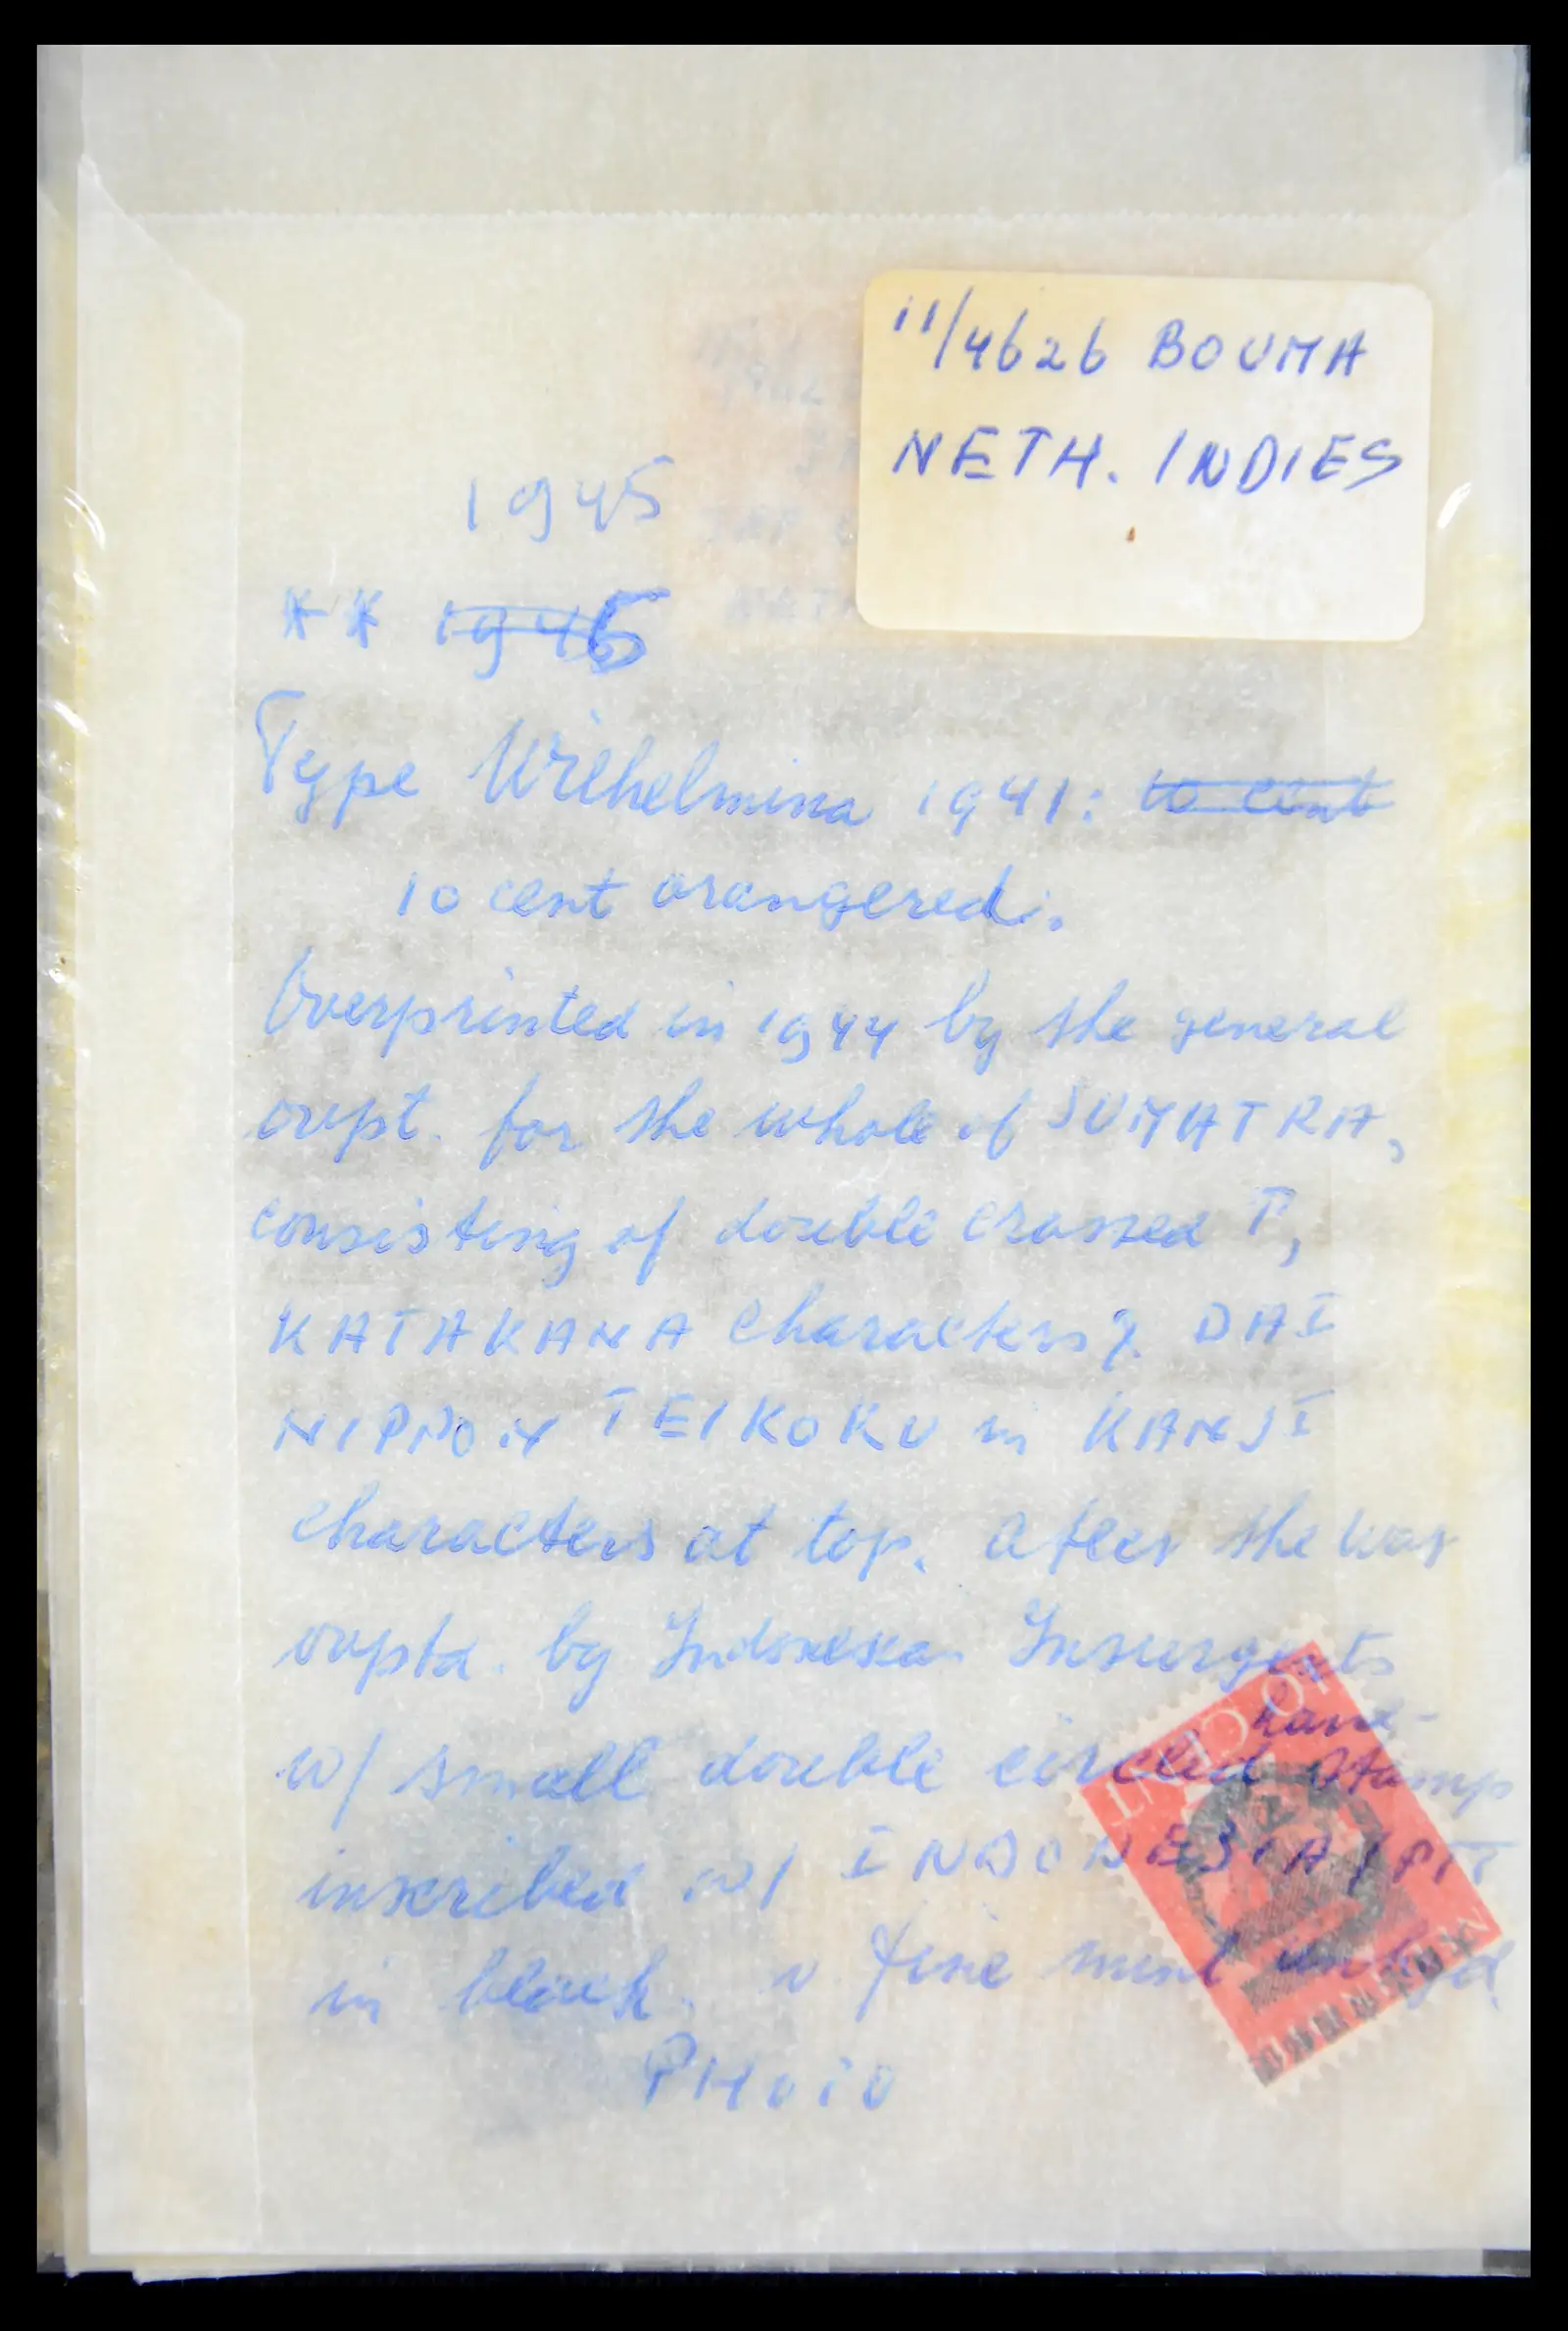 11/4626 BOUMA
NETH. INDIES
1945
** 1945
Type Wilhelmina 1941: 10 cent
10 cent orangered:
Overprinted in 1944 by the general
ovpt. for the whole of SUMATRA,
consisting of double crossed T,
KATAKANA characters & DAI
NIPPON TEIKOKU in KANJI
characters at top. After the war
ovptd. by Indonesian Insurgents
w/ small double circled hand-
stamp
inscribed w/ INDONESIA/PTT
in black. v. fine mint unhgd
PHOTO
10 CENT